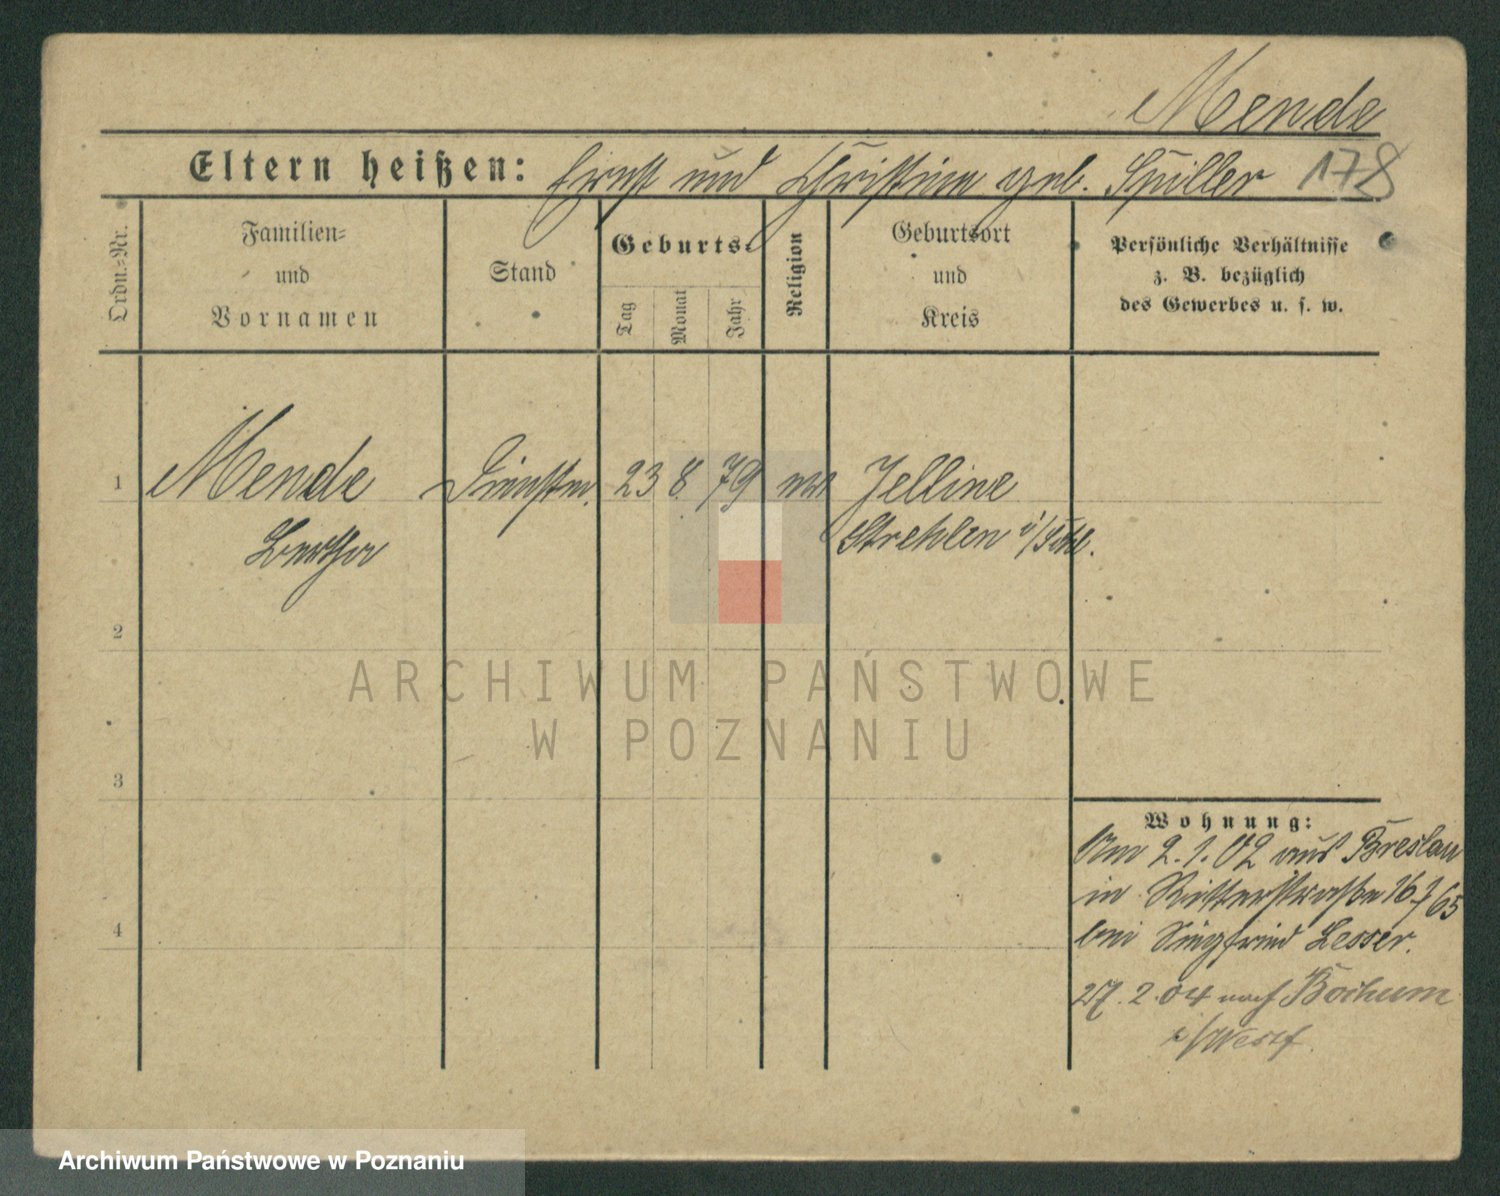 Mende
Eltern heißen: Ernst und Christine geb. Spiller 178
Ordn.-Nr.
Familien-
und
Vornamen
Stand
Geburts-
Tag
Monat
Jahr
Religion
Geburtsort
und
Kreis
Persönliche Verhältnisse
z. B. bezüglich
des Gewerbes u. s. w.
1 Mende Dienstm. 23 8. 79 ev Jelline
Bertha Strehlen i/Schl.
2
3
4
ARCHIWUM PAŃSTWOWE
W POZNANIU
Wohnung:
Am 2.1.02 aus Breslau
in Ritterstraße 16
bei Siegfried Lesser.
27.2.04 nach Bochum
i/Westf.
Archiwum Państwowe w Poznaniu